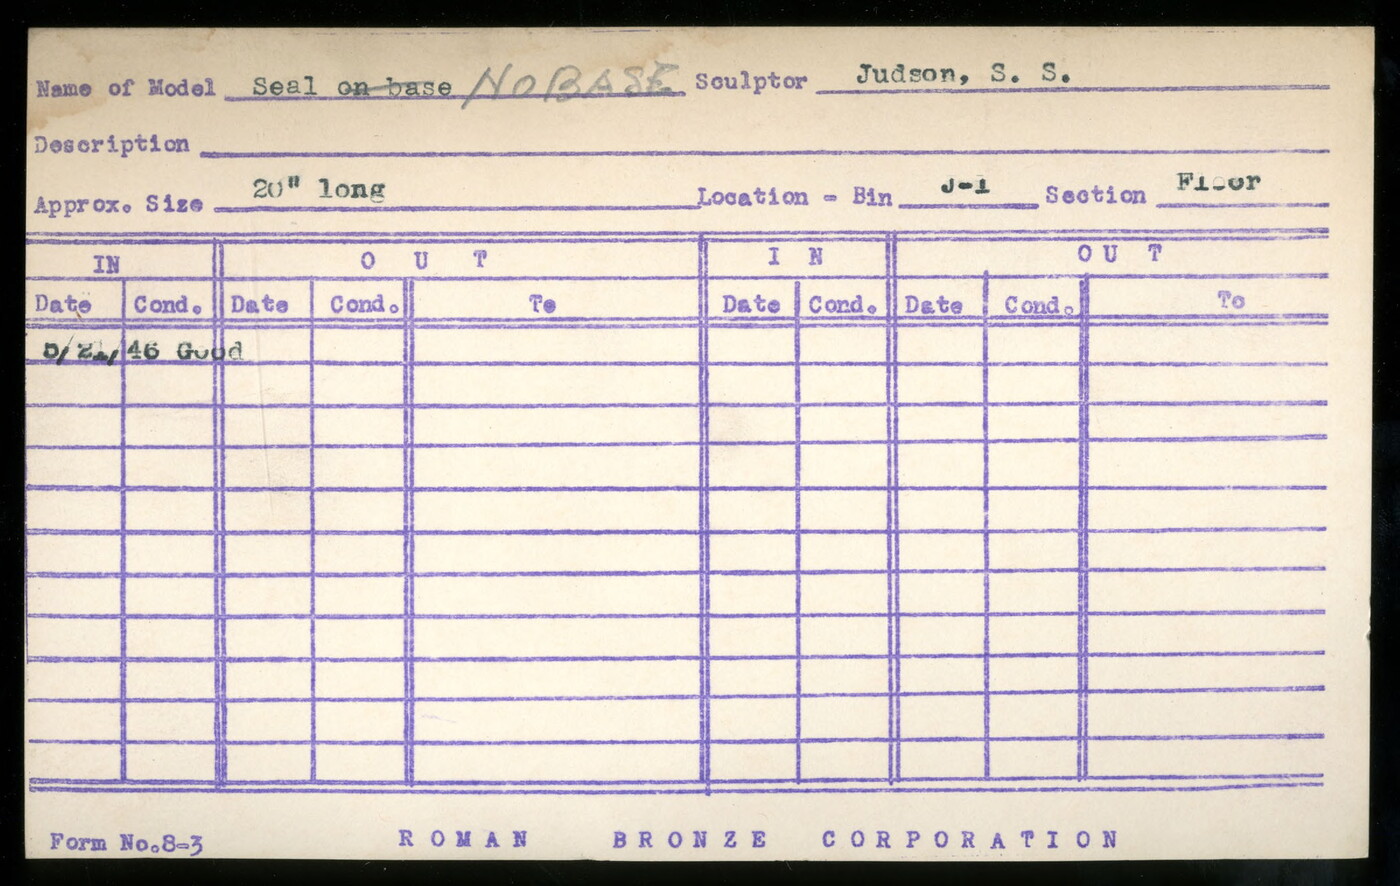 Name of Model Seal on base NO BASE Sculptor Judson, S. S.
Description
Approx. Size 20" long Location - Bin J-1 Section Floor
IN OUT IN OUT
Date Cond. Date Cond. To Date Cond. Date Cond. To
5/21/46 Good
Form No.8-3 ROMAN BRONZE CORPORATION